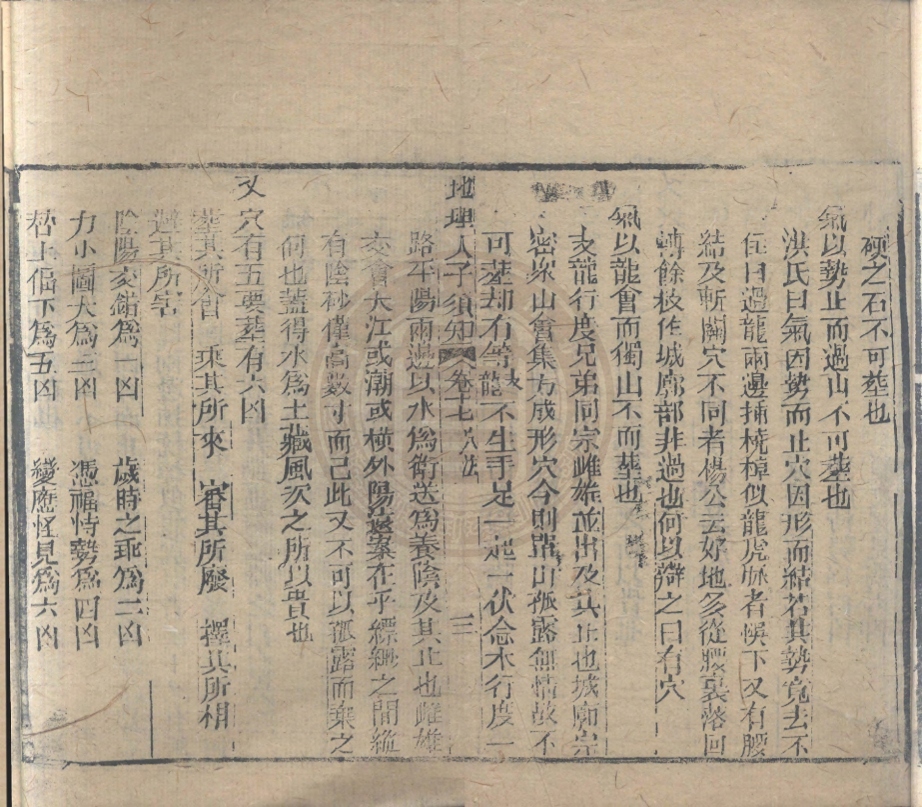 頑之石不可塟也
氣以勢止而過山不可塟也
洪氏曰氣因勢而止穴因形而結若其勢寬去不
住曰過龍兩邊挿橈棹似龍虎脉者悞下又有腰
結及斬關穴不同者楊公云好地多從腰裏落囘
轉餘枝作城廓部非過也何以辯之曰有穴
氣以龍會而獨山不可塟也
支龍行度兄弟同宗雌雄並出及其止也城廓宗
密衆山㑹集方成形穴今則單山孤露無情故不
可塟却有等支龍不生手足一起一伏金木行度一
地理人子須知 卷十七 穴法 三
路平陽兩邊以水爲衛送爲養陰及其止也雌雄
交㑹大江或潮或横外陽遠案在乎縹緲之間縱
有陰砂僅高數寸而已此又不可以孤露而棄之
何也葢得水爲上藏風次之所以貴也
又 穴有五要塟有六凶
塟其所會 乘其所來 審其所廢 擇其所相
避其所害
陰陽交錯爲一凶 歲時之乖爲二凶
力小圖大爲三凶 憑福恃勢爲四凶
僣上偪下爲五凶 變應怪見爲六凶